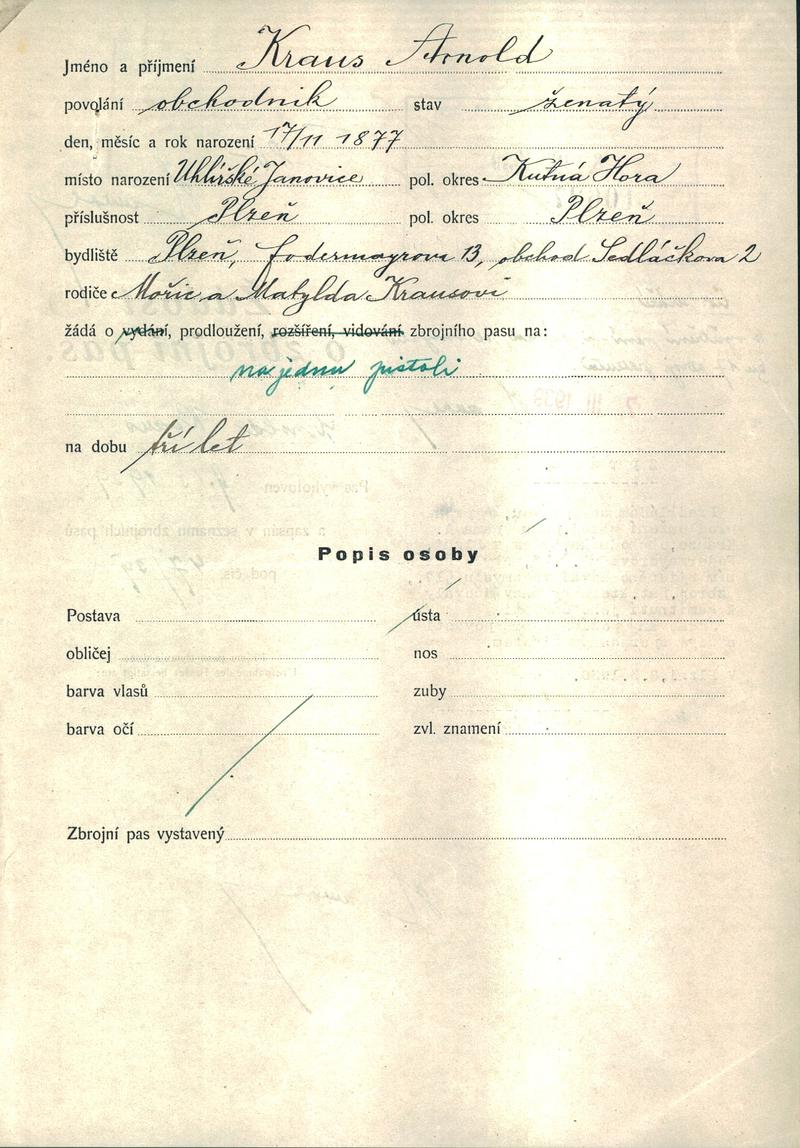 Jméno a příjmení Kraus Arnold
povolání obchodník stav ženatý
den, měsíc a rok narození 17/11 1877
místo narození Uhlířské Janovice pol. okres Kutná Hora
příslušnost Plzeň pol. okres Plzeň
bydliště Plzeň, Fodermayrova 13, obchod Sedláčkova 2
rodiče Mořic a Matylda Krausovi
žádá o vydání, prodloužení, rozšíření, vidování zbrojního pasu na:
na jednu pistoli
na dobu tří let
Popis osoby
Postava ústa
obličej nos
barva vlasů zuby
barva očí zvl. znamení
Zbrojní pas vystavený